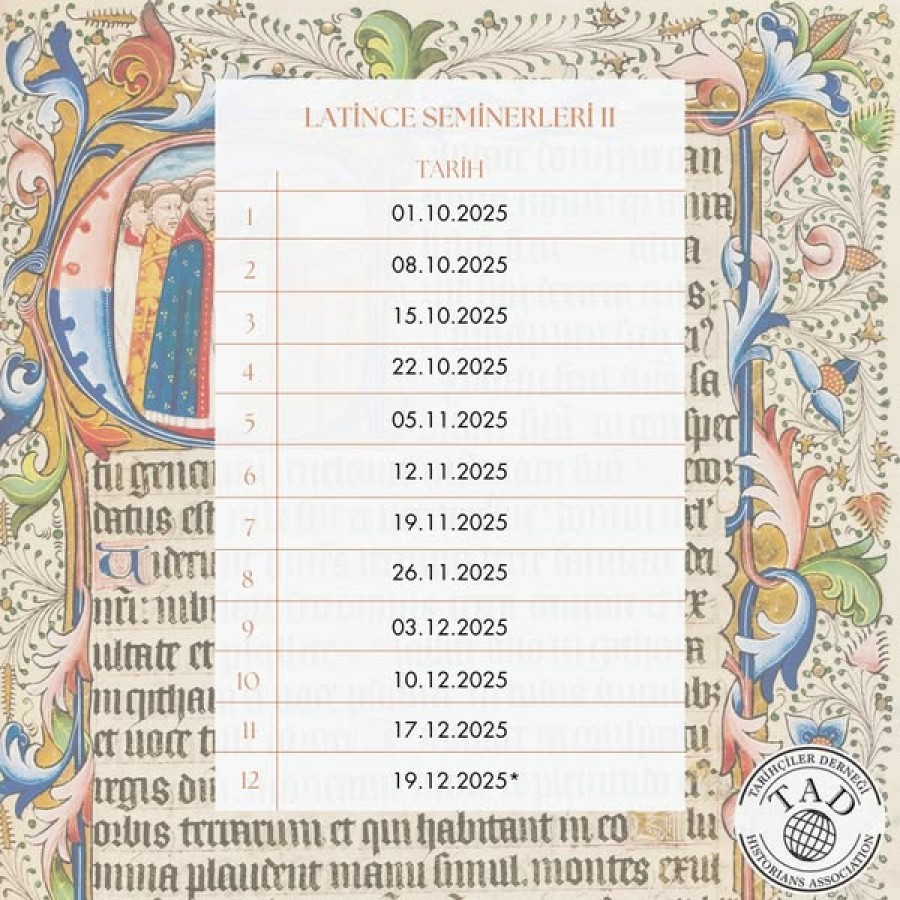 LATİNCE SEMİNERLERİ II
TARİH
1 01.10.2025
2 08.10.2025
3 15.10.2025
4 22.10.2025
5 05.11.2025
6 12.11.2025
7 19.11.2025
8 26.11.2025
9 03.12.2025
10 10.12.2025
11 17.12.2025
12 19.12.2025*
tu genera
datus est
Uiderun
nri: nubi
ultate et
in cythar
et uoce t
regis dni
orbis terrarum et qui habitant in eo
mina plaudent manu simul. montes exul
TARİHÇİLER DERNEĞİ
TAD
HISTORIANS ASSOCIATION